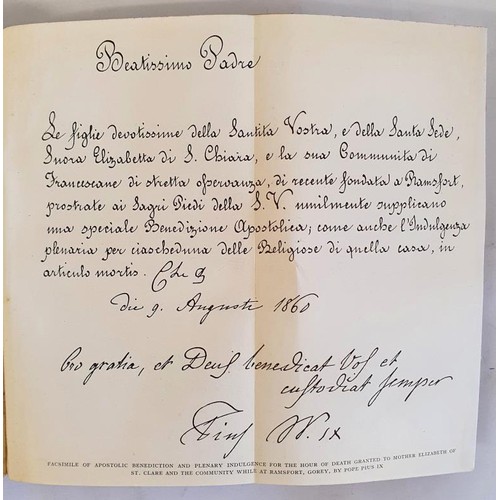 Beatissimo Padre
Le figlie devotissime della Santità Vostra, e della Santa Sede,
Suora Elizabetta di S. Chiara, e la sua Communita di
Francescane di stretta osservanza, di recente fondata a Ramsfort,
prostrate ai Sagri Piedi della S. V. umilmente supplicano
una speciale Benedizione Apostolica; come anche l'Indulgenza
plenaria per ciascheduna delle Religiose di quella casa, in
articulo mortis. Che
die 9. Augusti 1860
Pro gratia, et Deus benedicat Vos et
custodiat semper
Pius P. IX
FACSIMILE OF APOSTOLIC BENEDICTION AND PLENARY INDULGENCE FOR THE HOUR OF DEATH GRANTED TO MOTHER ELIZABETH OF
ST. CLARE AND THE COMMUNITY WHILE AT RAMSFORT, GOREY, BY POPE PIUS IX